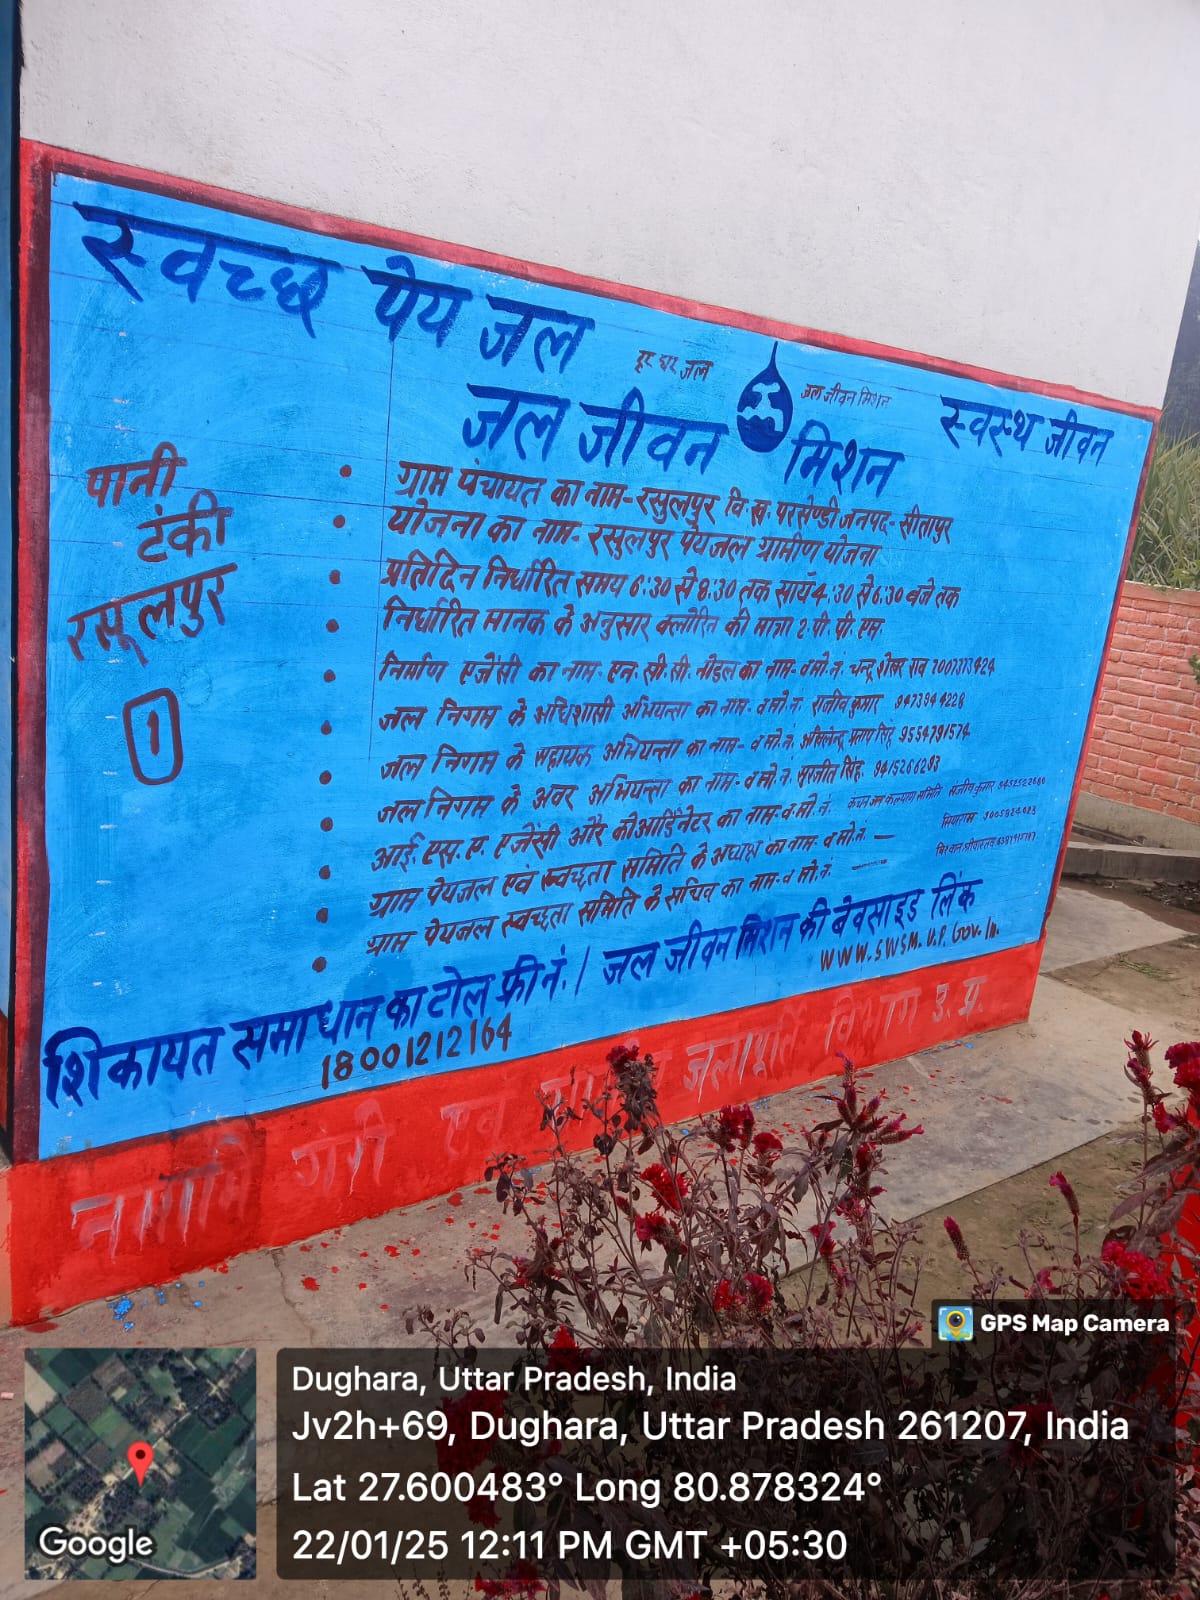 स्वच्छ पेय जल
हर घर जल
जल जीवन मिशन
स्वस्थ जीवन
जल जीवन मिशन
पानी
टंकी
रसूलपुर
1
ग्राम पंचायत का नाम- रसुलपुर वि.ख. परसेण्डी जनपद- सीतापुर
योजना का नाम- रसुलपुर पेयजल ग्रामीण योजना
प्रतिदिन निर्धारित समय 6:30 से 8:30 तक सायँ 4:30 से 6:30 बजे तक
निर्धारित मानक के अनुसार क्लोरिन की मात्रा 2.पी.पी.एम.
निर्माण एजेंसी का नाम- एन.सी.सी. नोडल का नाम- व मो.नं. चन्द्र शेखर राव 7007373424
जल निगम के अधिशासी अभियन्ता का नाम- व मो.नं. राजीव कुमार 9473944228
जल निगम के सहायक अभियन्ता का नाम- व मो.नं. अखिलेन्द्र प्रताप सिंह 9554791574
जल निगम के अवर अभियन्ता का नाम- व मो.नं. सुरजीत सिंह. 9415266283
आई.एस.ए. एजेंसी और कोआर्डिनेटर का नाम-व.मो.नं. जन कल्याण समिति संजीव कुमार
ग्राम पेयजल एवं स्वच्छता समिति के अध्यक्ष का नाम- व मो.नं. —
ग्राम पेयजल स्वच्छता समिति के सचिव का नाम- व मो.नं. —
शिकायत समाधान का टोल फ्री नं. / जल जीवन मिशन की बेवसाइड लिंक
18001212164
WWW.SWSM.U.P.Gov.In.
नमामि गंगे जलापूर्ति विभाग उ.प्र.
GPS Map Camera
Dughara, Uttar Pradesh, India
Jv2h+69, Dughara, Uttar Pradesh 261207, India
Lat 27.600483° Long 80.878324°
22/01/25 12:11 PM GMT +05:30
Google